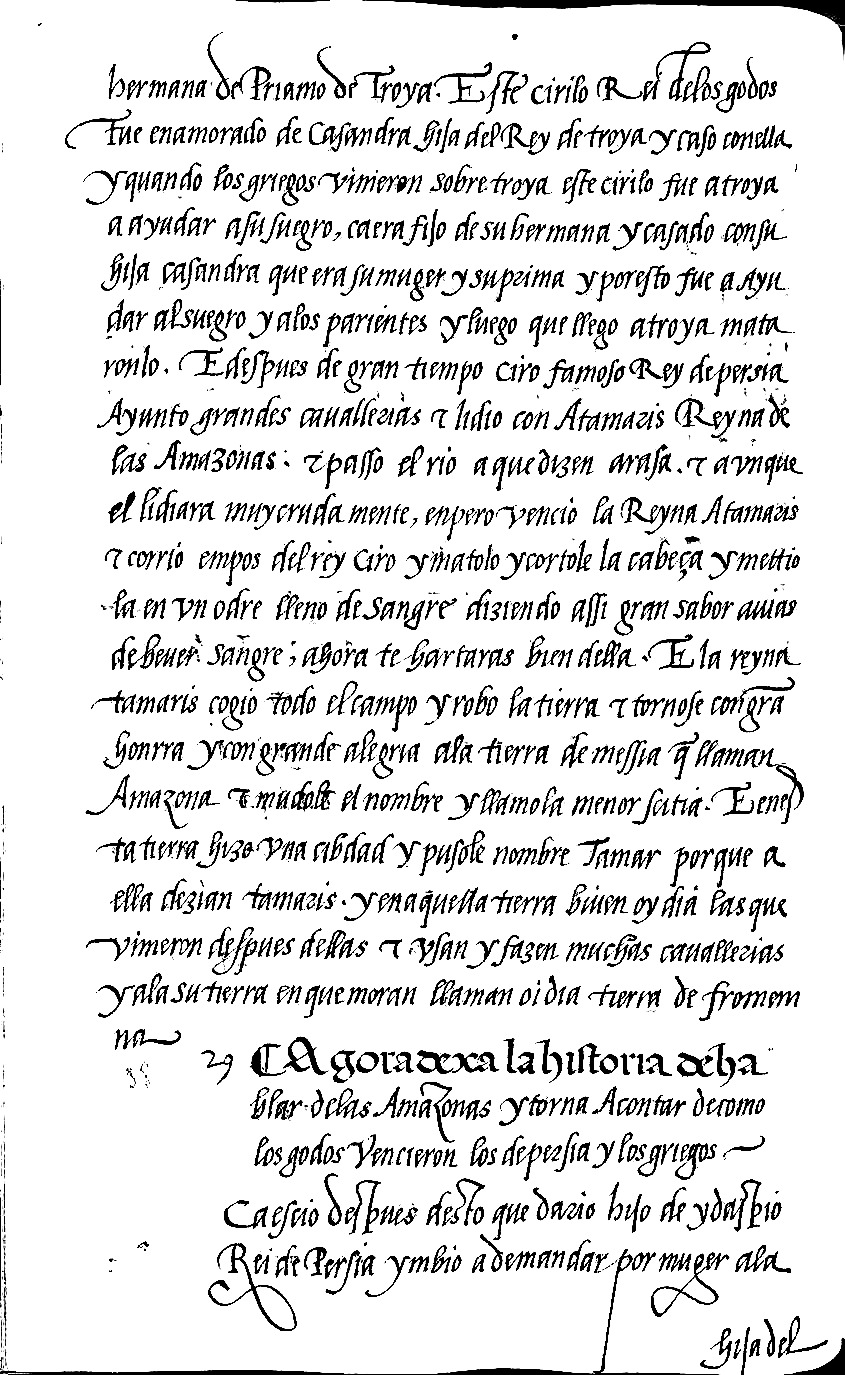 hermana de Priamo de Troya. Este cirilo Rei delos godos
fue enamorado de Casandra hija del Rey de troya y caso conella
y quando los griegos vinieron sobre troya este cirilo fue a troya
a ayudar a su suegro, ca era fijo de su hermana y casado consu
hija casandra que era su muger y su prima y por esto fue a Ayu
dar al suegro y alos parientes y luego que llego a troya mata
ronlo. E despues de gran tiempo Ciro famoso Rey de persia
Ayunto grandes cauallerias τ lidio con Atamaris Reyna de
las Amazonas. τ passo el rio a que dizen arasa. τ avnque
el lidiara muy cruda mente, enpero vencio la Reyna Atamaris
τ corrio empos del rey Ciro y matolo y cortole la cabeça y mettio
la en vn odre lleno de sangre diziendo assi gran sabor auias
de beuer sangre; ahora te hartaras bien della. E la reyna
tamaris cogio todo el campo y robo la tierra τ tornose con grã
honrra y con grande alegria ala tierra de messia q̃ llaman
Amazona τ mudole el nombre y llamo la menor scitia. E enes
ta tierra hizo vna cibdad y pusole nombre Tamar porque a
ella dezian tamaris. y en aq̃uella tierra biuen oy dia las que
vinieron despues dellas τ vsan y fazen muchas cauallerias
y ala su tierra en que moran llaman oi dia tierra de fromem
na
29 ¶ Agora dexa la historia de ha
blar delas Amazonas y torna A contar de como
los godos Vencieron los de persia y los griegos
Caescio despues desto que dario hijo de ydaspio
Rei de Persia ymbio a demandar por muger ala
hija del